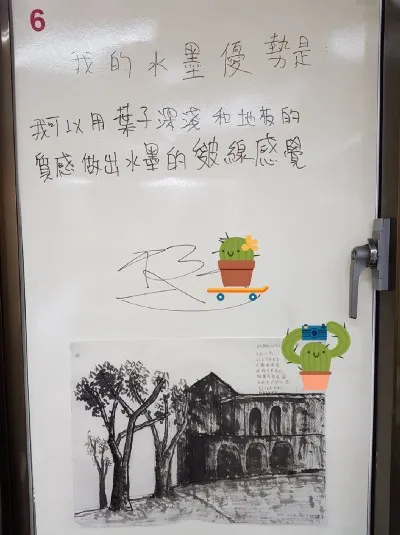 6
我的水墨優勢是:
我可以用葉子深淺和地板的
質感做出水墨的皴線感覺